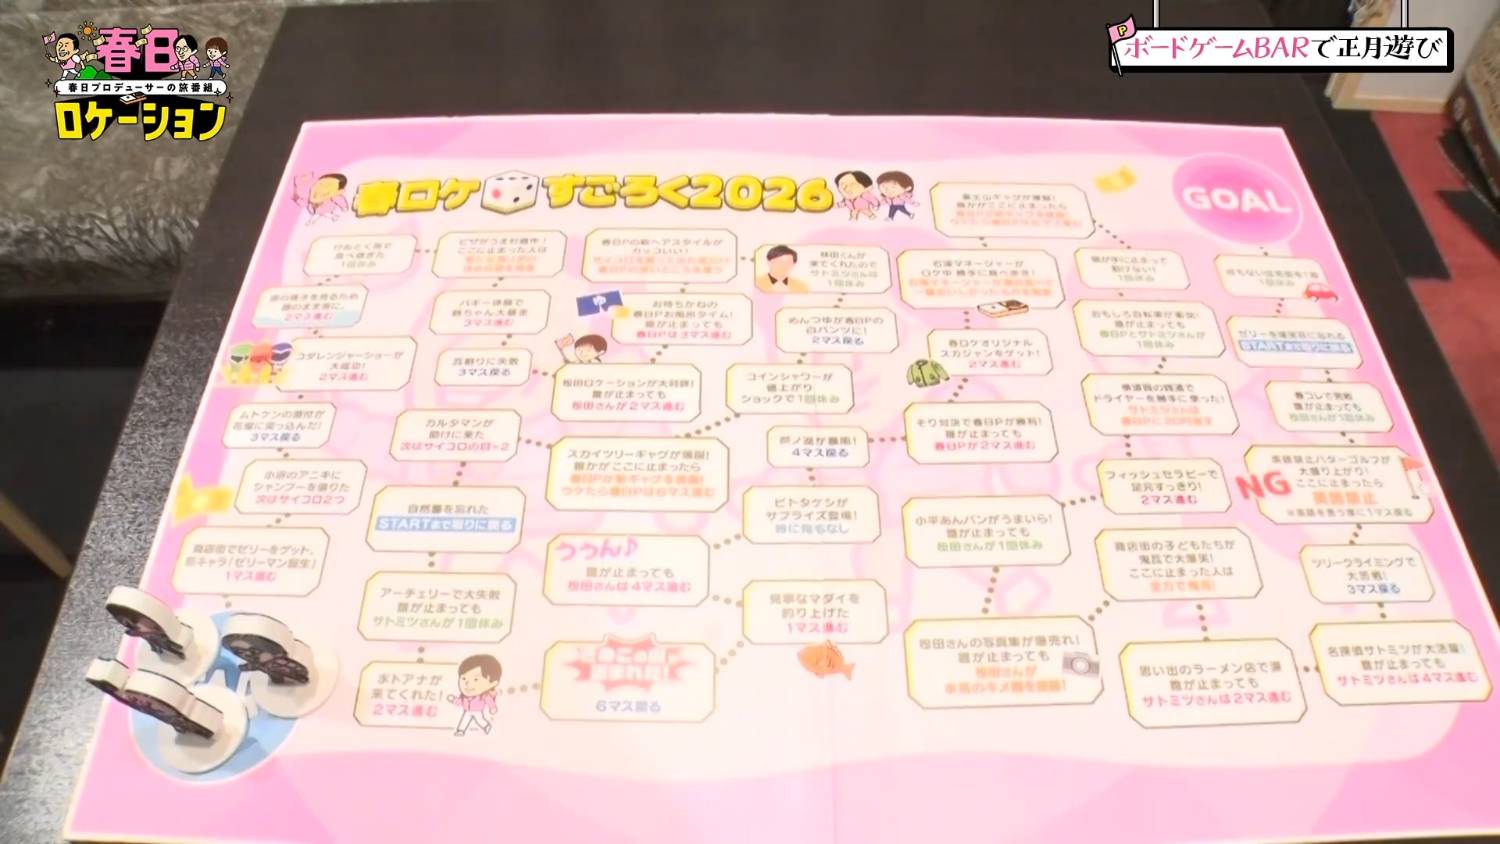 春日
春日プロデューサーの旅番組
ロケーション
ボードゲームBARで正月遊び
春ロケ すごろく2026
GOAL
2マス進む
コダレンジャーショーが
大成功!
2マス進む
ムトケンの原付が
花屋に突っ込んだ!
3マス戻る
小沼のアニキに
シャンプーを借りた
次はサイコロ2つ
商店街でゼリーをゲット、
新キャラ「ゼリーマン誕生」
1マス進む
バギー体験で
3マス進む
瓦割りに失敗
3マス戻る
カルタマンが
助けに来た
次はサイコロの目×2
自然薯を忘れた
STARTまで取りに戻る
アーチェリーで大失敗
誰が止まっても
サトミツさんが1回休み
氷トアナが
来てくれた!
2マス進む
6マス戻る
ううん♪
誰が止まっても
松田さんは4マス進む
スカイツリーギャグが爆誕!
誰かがここに止まったら
春日Pが新ギャグを披露!
ウケたら春日Pは6マス進む
松田ロケーションが大好評!
誰が止まっても
松田さんが2マス進む
お待ちかねの
春日Pお風呂タイム!
誰が止まっても
春日Pは3マス進む
春日Pの新ヘアスタイルが
カッコいい!
林田くんが
来てくれたので
サトミツさんは
1回休み
めんつゆが春日Pの
白パンツに!
2マス戻る
コインシャワーが
値上がり
ショックで1回休み
芦ノ湖が暴風!
4マス戻る
ビトタケシが
サプライズ登場!
特に指名なし
見事なマダイを
釣り上げた
1マス進む
富士山ギャグが爆誕!
誰かがここに止まったら
石澤マネージャーが
ロケ中 勝手に食べ歩き!
春ロケオリジナル
スカジャンをゲット!
2マス進む
そり対決で春日Pが勝利!
誰が止まっても
春日Pが2マス進む
小平あんパンがうまいら!
誰が止まっても
松田さんが1回休み
松田さんの写真集が爆売れ!
誰が止まっても
松田さんが
渾身のキメ顔を披露!
動けない!
1回休み
おもしろ自転車が衝突!
誰が止まっても
春日Pとサトミツさんが
1回休み
横須賀の銭湯で
ドライヤーを勝手に使った!
サトミツさんは
春日Pに20円渡す
フィッシュセラピーで
足元すっきり!
2マス進む
商店街の子どもたちが
鬼瓦で大爆笑!
ここに止まった人は
全力で鬼瓦!
思い出のラーメン店で涙
誰が止まっても
サトミツさんは2マス進む
1回休み
STARTまで取りに戻る
春コレで完敗
誰が止まっても
松田さんが1回休み
NG
英語禁止パターゴルフが
大盛り上がり!
ここに止まったら
英語禁止
※英語を言う度に1マス戻る
ツリークライミングで
大苦戦!
3マス戻る
名探偵サトミツが大活躍!
誰が止まっても
サトミツさんは4マス進む